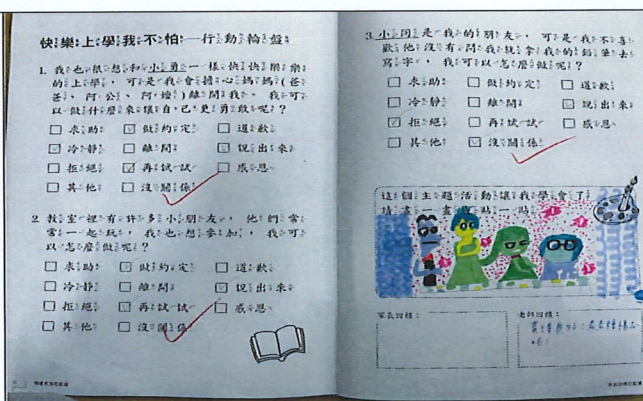 快樂上學我不怕—行動輪盤
1. 我也很想和小勇一樣快快樂樂
的上學,可是我會擔心媽媽(爸
爸、阿公、阿嬤)離開我。我可
以做什麼來讓自己更勇敢呢?
求助 做約定 道歉
冷靜 離開 說出來
拒絕 再試試 感恩
其他 沒關係
2. 教室裡有許多小朋友,他們常
常一起玩,我也想參加,我可
以怎麼做呢?
求助 做約定 道歉
冷靜 離開 說出來
拒絕 再試試 感恩
其他 沒關係
3. 小同是我的朋友,可是我不喜
歡他沒有問我就拿我的鉛筆去
寫字,我可以怎麼做呢?
求助 做約定 道歉
冷靜 離開 說出來
拒絕 再試試 感恩
其他 沒關係
這個主題活動讓我學會了
請畫一畫或貼一貼
家長回饋:
老師回饋: